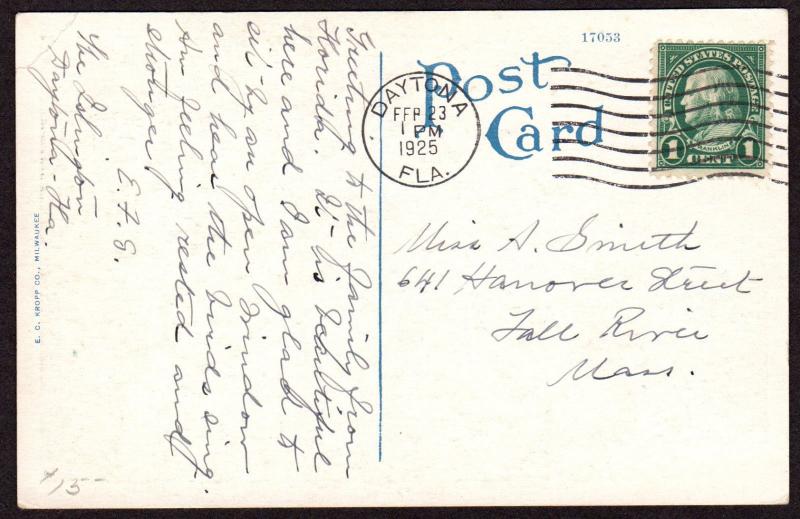 17053
Post
Card
DAYTONA
FEB 23
1 PM
1925
FLA.
UNITED STATES POSTAGE
FRANKLIN
1 CENT 1
Greeting to the family from
Florida. It is beautiful
here and I am glad to
sit by an open window
and hear the birds sing.
Am feeling rested and
stronger.
E. F. G.
The
Daytona - Fla.
Miss A. Smith
641 Hanover Street
Fall River
Mass.
E. C. KROPP CO., MILWAUKEE
15-